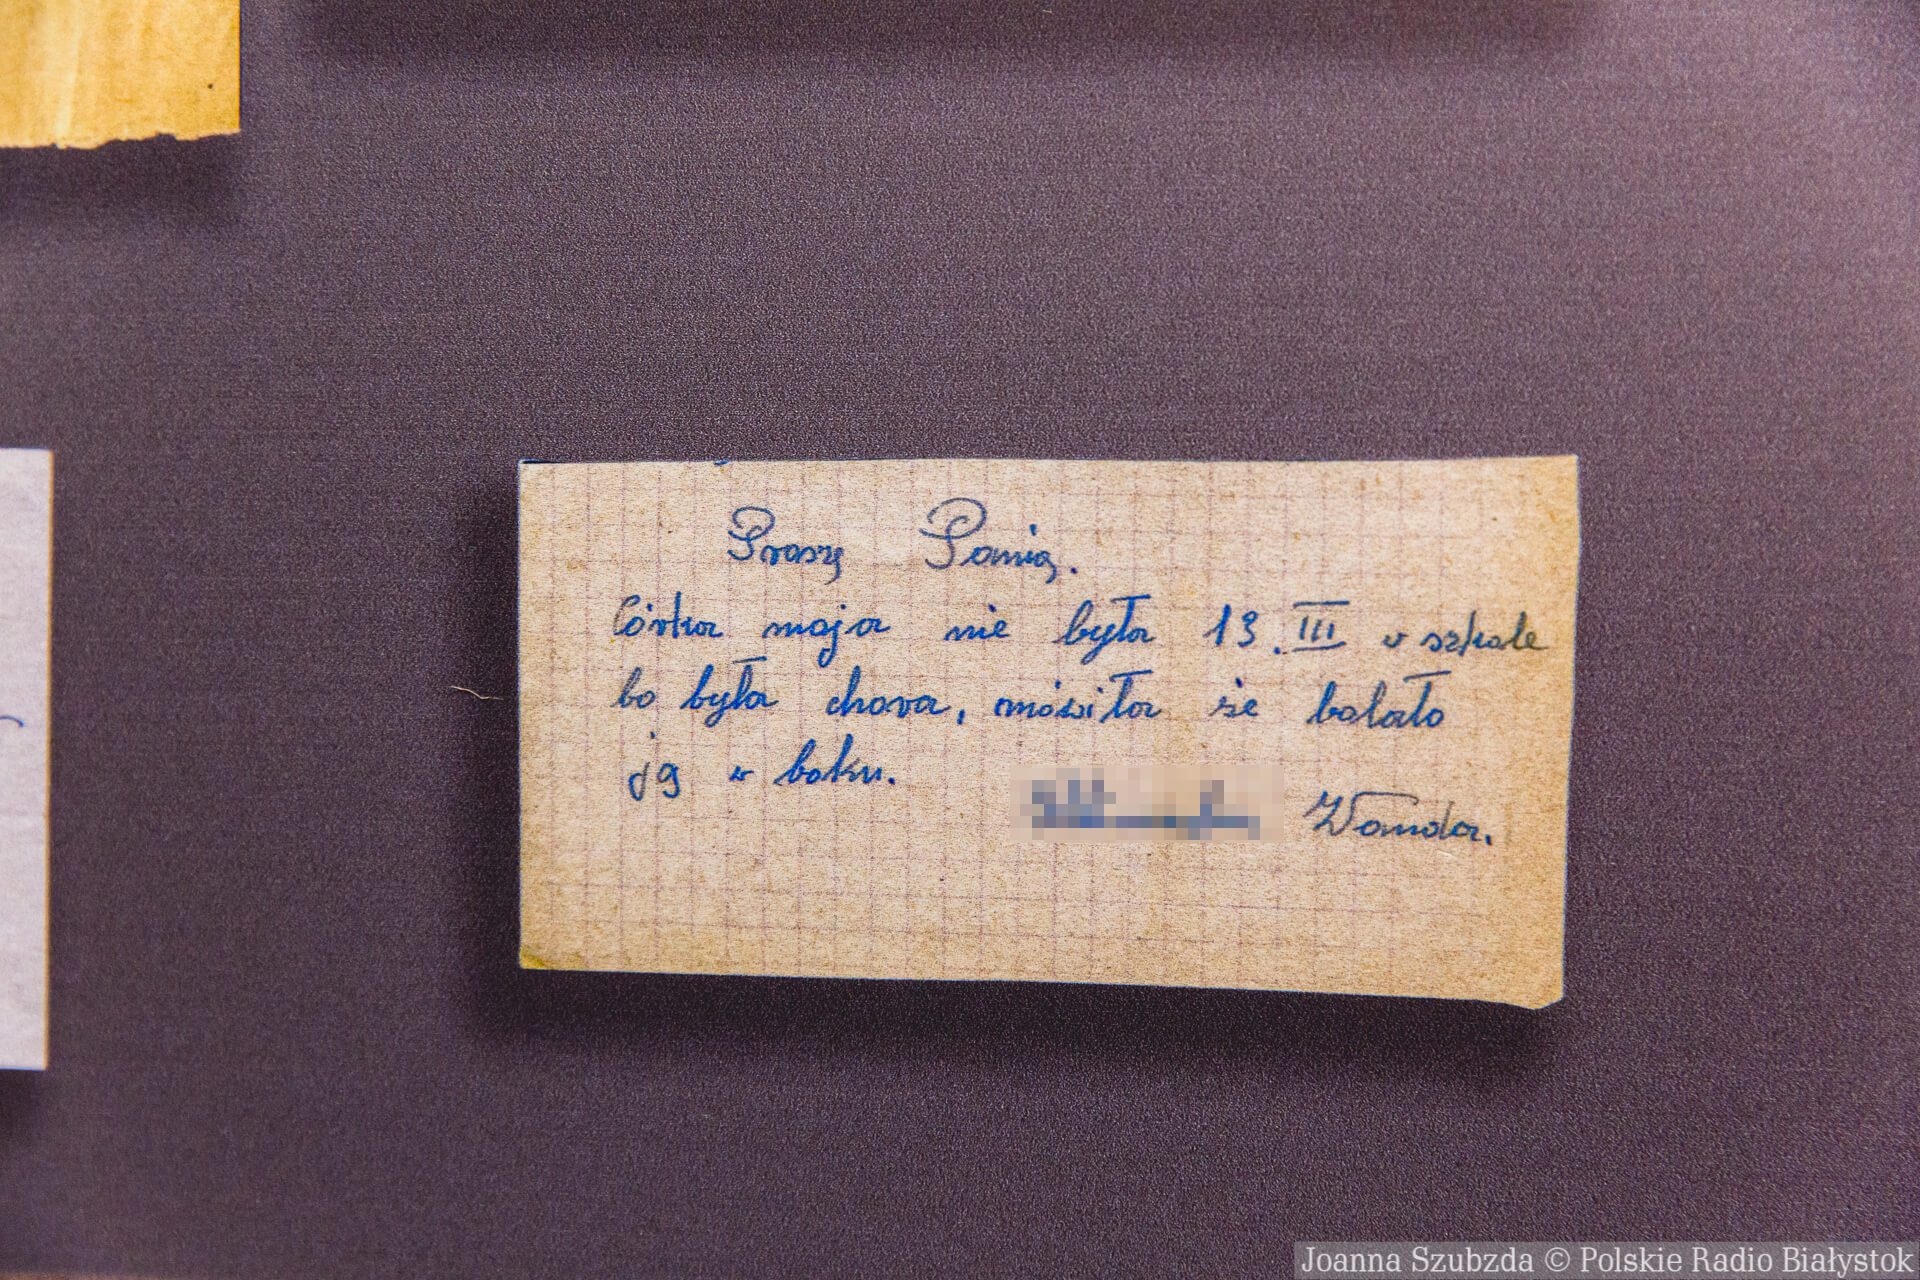 Proszę Panią.
Córka moja nie była 13.III w szkole
bo była chora, mówiła że bolało
ją w boku.
Wanda.
Joanna Szubzda © Polskie Radio Białystok